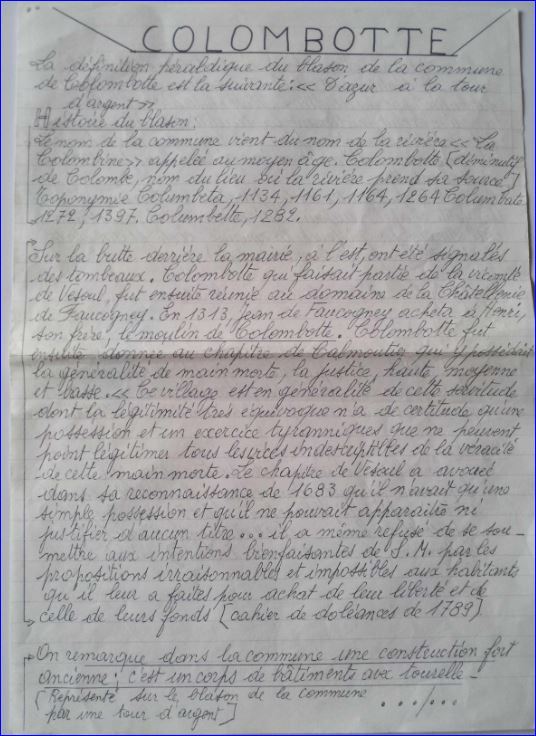 COLOMBOTTE
La définition héraldique du blason de la commune
de Colombotte est la suivante: << D'azur à la tour
d'argent >>
Histoire du blason:
Le nom de la commune vient du nom de la rivière << La
Colombine >> appelée au moyen âge. Colombotte [diminutif
de Colombe, nom du lieu où la rivière prend sa source]
Toponymie Columbeta, 1134, 1161, 1164, 1264 Columbate
1272, 1397. Columbette, 1282.
Sur la butte derrière la mairie, à l'est, ont été signalés
des tombeaux. Colombotte qui faisait partie de la vicomté
de Vesoul, fut ensuite réunie au domaine de la Châtellenie
de Faucogney. En 1313, Jean de Faucogney acheta à Henri,
son frère, le moulin de Colombotte. Colombotte fut
ensuite donnée au chapitre de Calmoutier qui y possédait
la généralité de main morte, la justice, haute, moyenne
et basse. << Ce village est en généralité de cette servitude
dont la légitimité très équivoque n'a de certitude qu'une
possession et un exercice tyranniques que ne peuvent
point légitimer tous les vices indestructibles de la voracité
de cette main morte. Le chapitre de Vesoul a avoué
dans sa reconnaissance de 1683 qu'il n'avait qu'une
simple possession et qu'il ne pouvait apparaître ni
justifier d'aucun titre... il a même refusé de se sou-
mettre aux intentions bienfaisantes de S. M. par les
propositions irraisonnables et impossibles aux habitants
qu'il leur a faites pour achat de leur liberté et de
celle de leurs fonds [cahier de doléances de 1789]
On remarque dans la commune une construction fort
ancienne; c'est un corps de bâtiments avec tourelle -
[Représenté sur le blason de la commune
par une tour d'argent] .../...